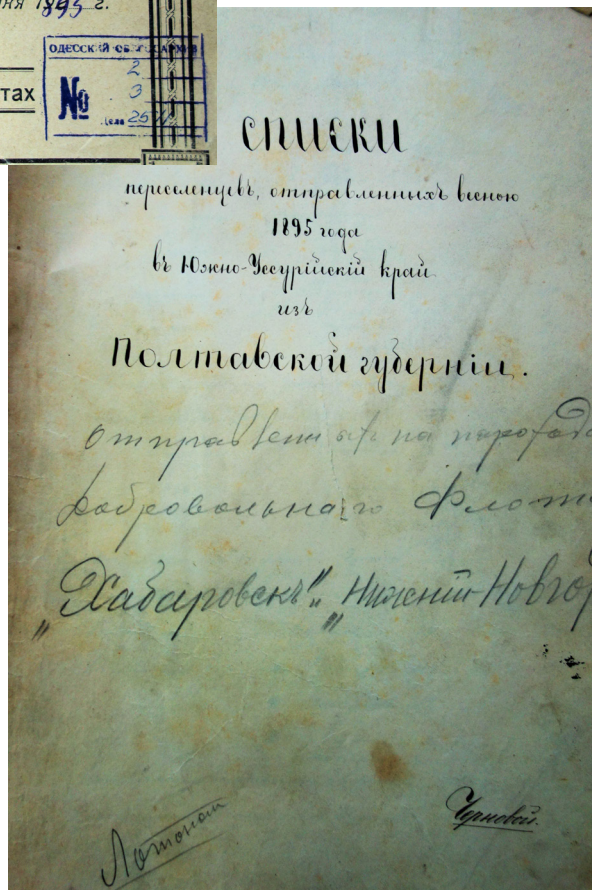 1895 г.
ОДЕССКИЙ ОБЛГОСАРХИВ
2
№ 3
дела
тах
Списки
переселенцевъ, отправленныхъ весною
1895 года
въ Южно-Уссурійскій край
изъ
Полтавской губерніи.
отправленныхъ на парохода
Добровольнаго Флота
„Хабаровскъ" „Нижній-Новгор
Черновой.